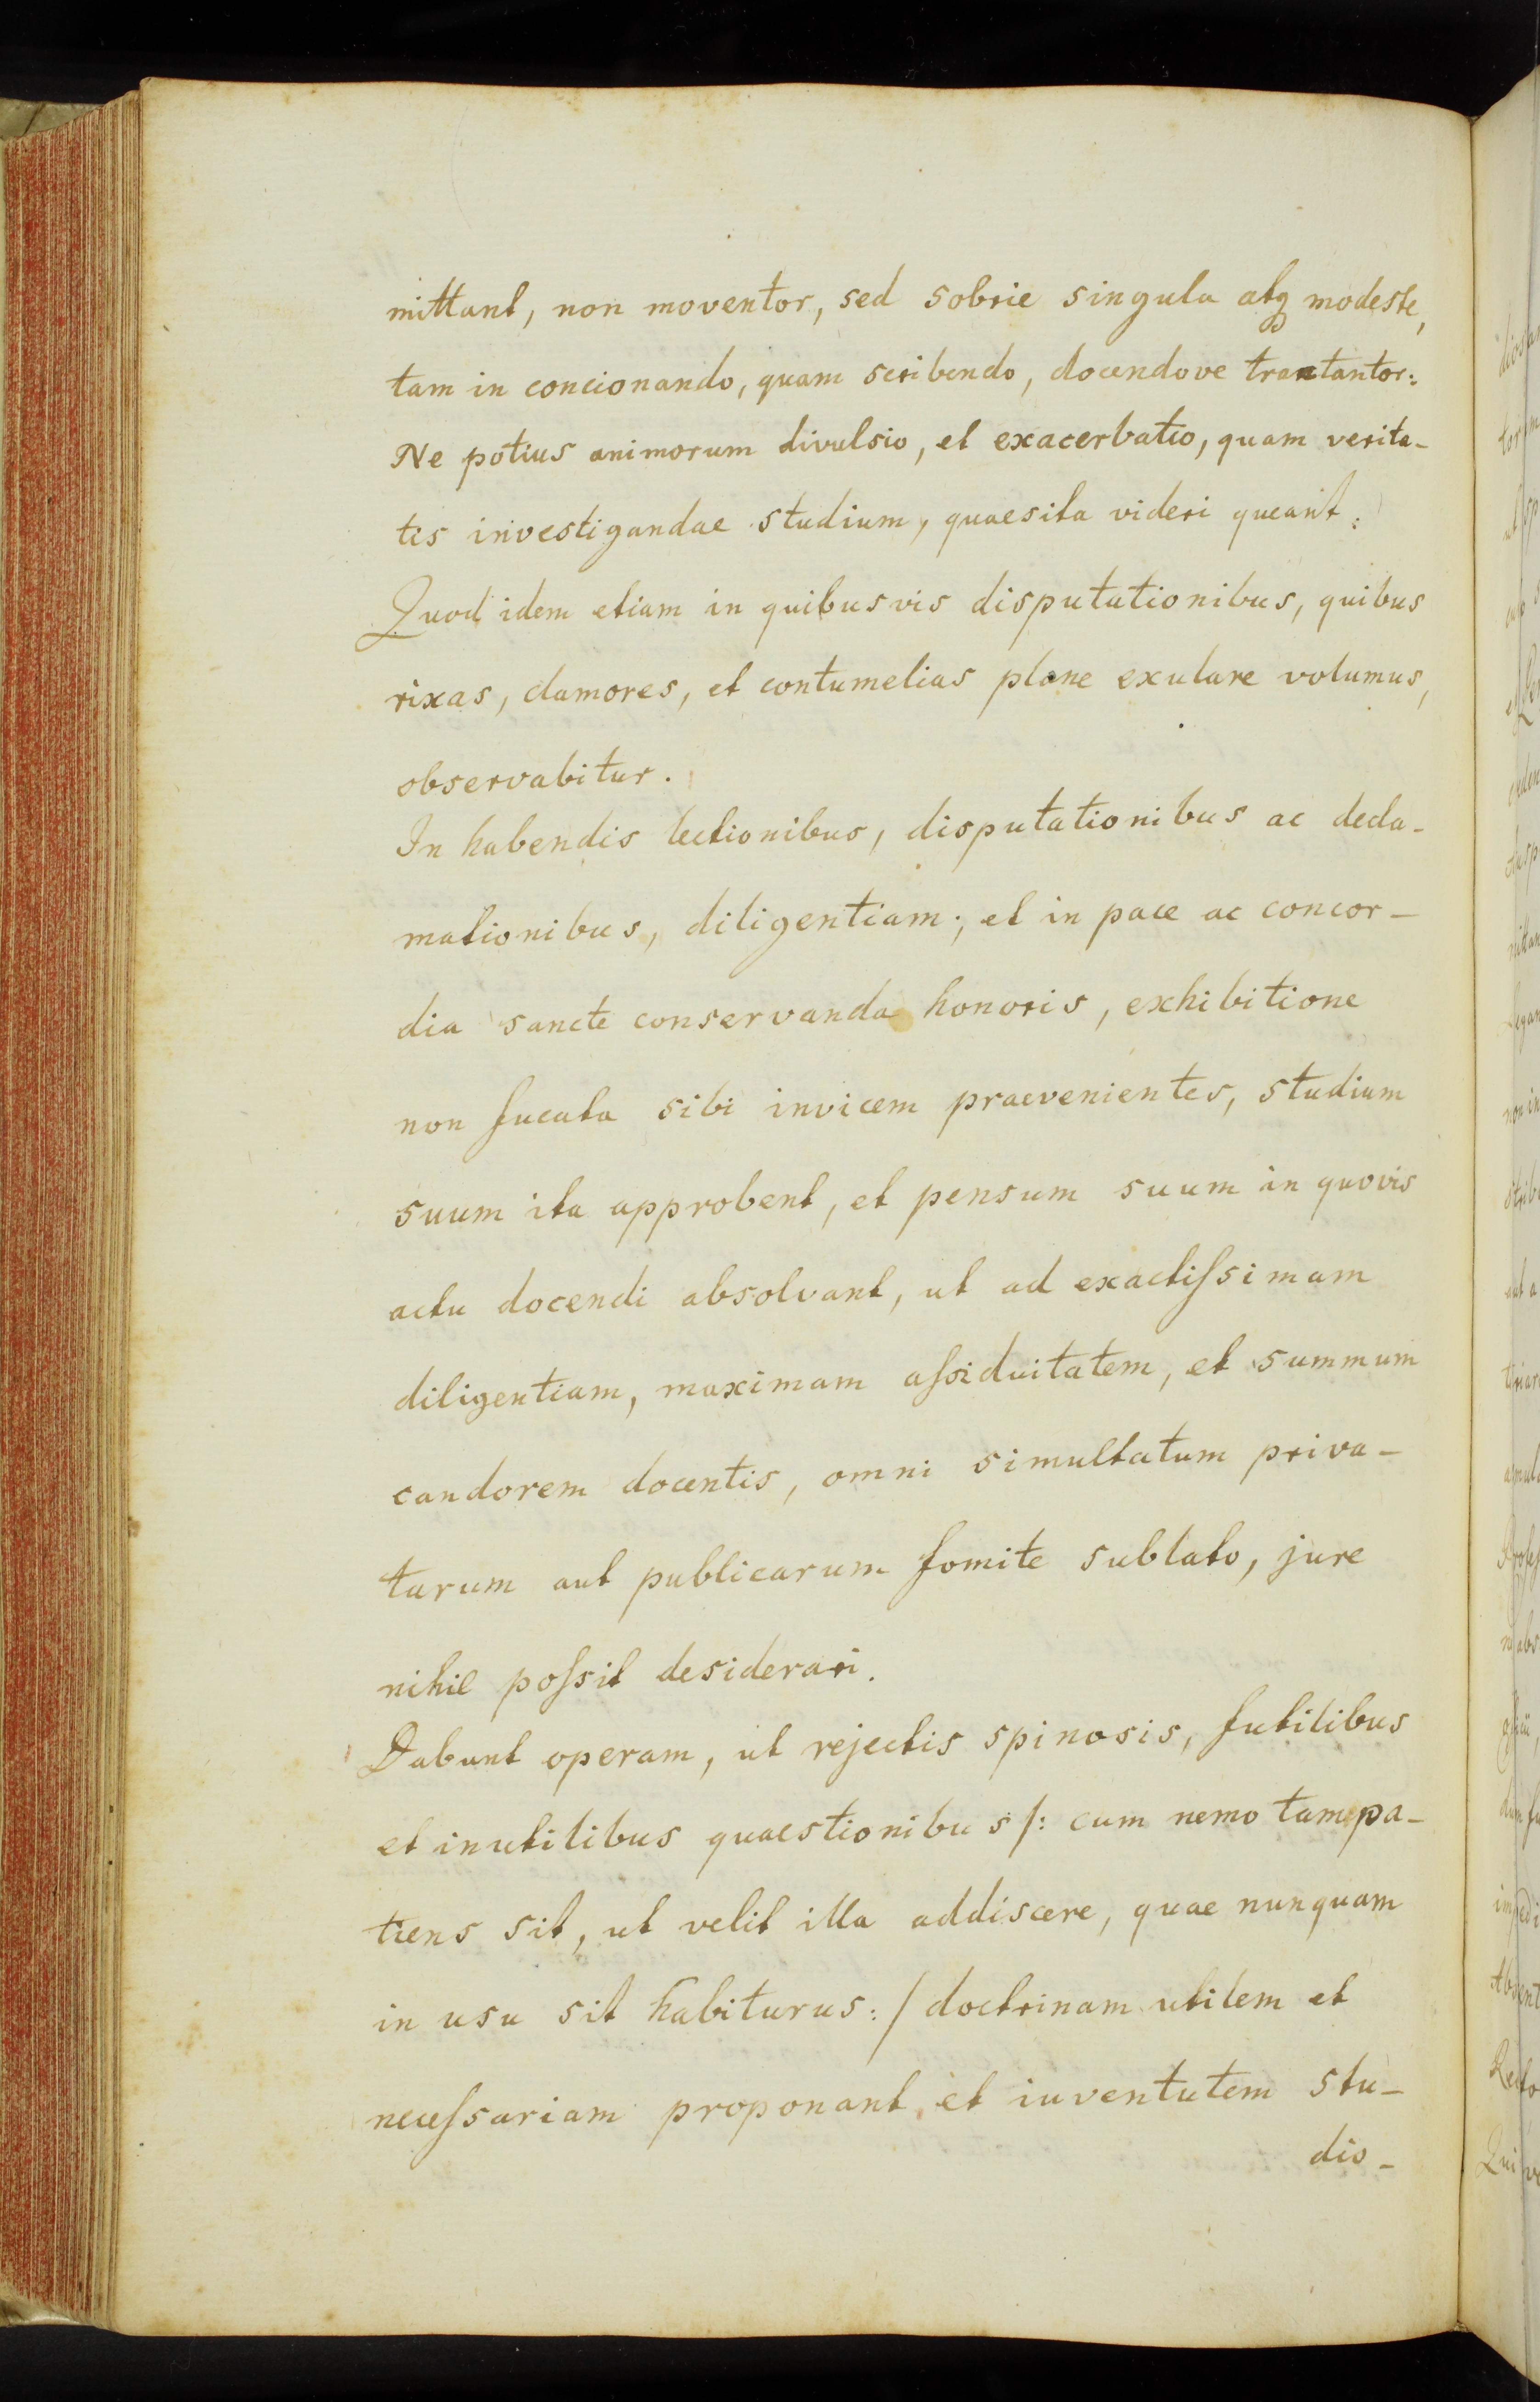 mittant, non moventor, sed sobrie singula atq modeste,
tam in concionando, quam scribendo, docendove tractantor:
Ne potius animorum divulsio, et exacerbatio, quam verita-
tis investigandae studium, quaesita videri queant:
Quod idem etiam in quibusvis disputationibus, quibus
rixas, clamores, et contumelias plane exulare volumus,
observabitur.
In habendis lectionibus, disputationibus ac decla-
mationibus, diligentiam; et in pace ac concor-
dia sancte conservanda honoris, exhibitione
non fucata sibi invicem praevenientes, studium
suum ita approbent, et pensum suum in quovis
actu docendi absolvant, ut ad exactiſsimam
diligentiam, maximam aſsiduitatem, et summum
candorem docentis, omni simultatum priva-
tarum aut publicarum fomite sublato, jure
nihil poſsit desiderari.
Dabunt operam, ut rejectis spinosis, futilibus
et inutilibus quaestionibus /: cum nemo tam pa-
tiens sit, ut velit illa addiscere, quae nunquam
in usu sit habiturus: / doctrinam utilem et
neceſsariam proponant et iuventutem stu-
dio-